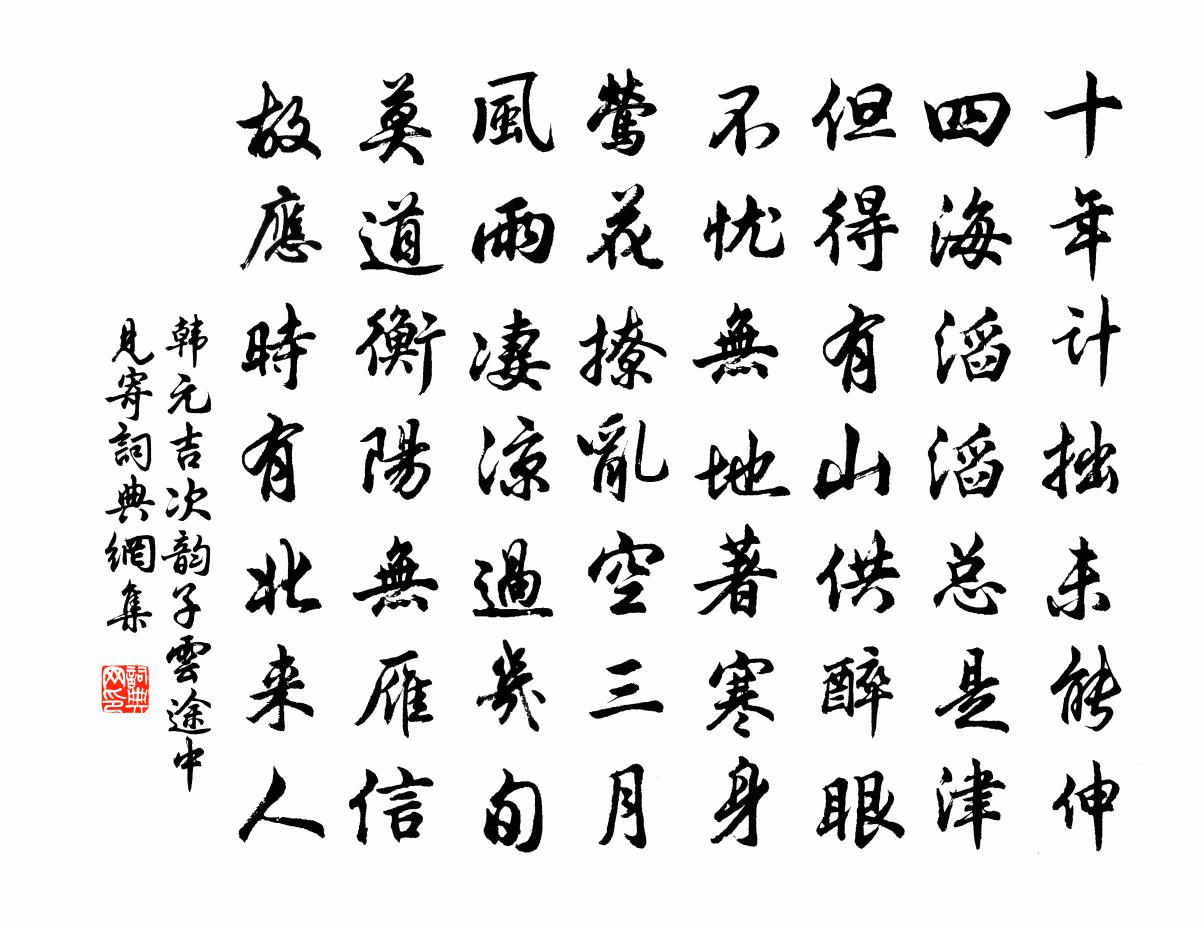 十年计拙未能伸
四海滔滔总是津
但得有山供醉眼
不忧無地著寒身
莺花撩亂空三月
風雨凄凉過幾旬
莫道衡陽無雁信
故應時有北来人
韩元吉次韵子雲途中
見寄詞典網集
詞典
网印